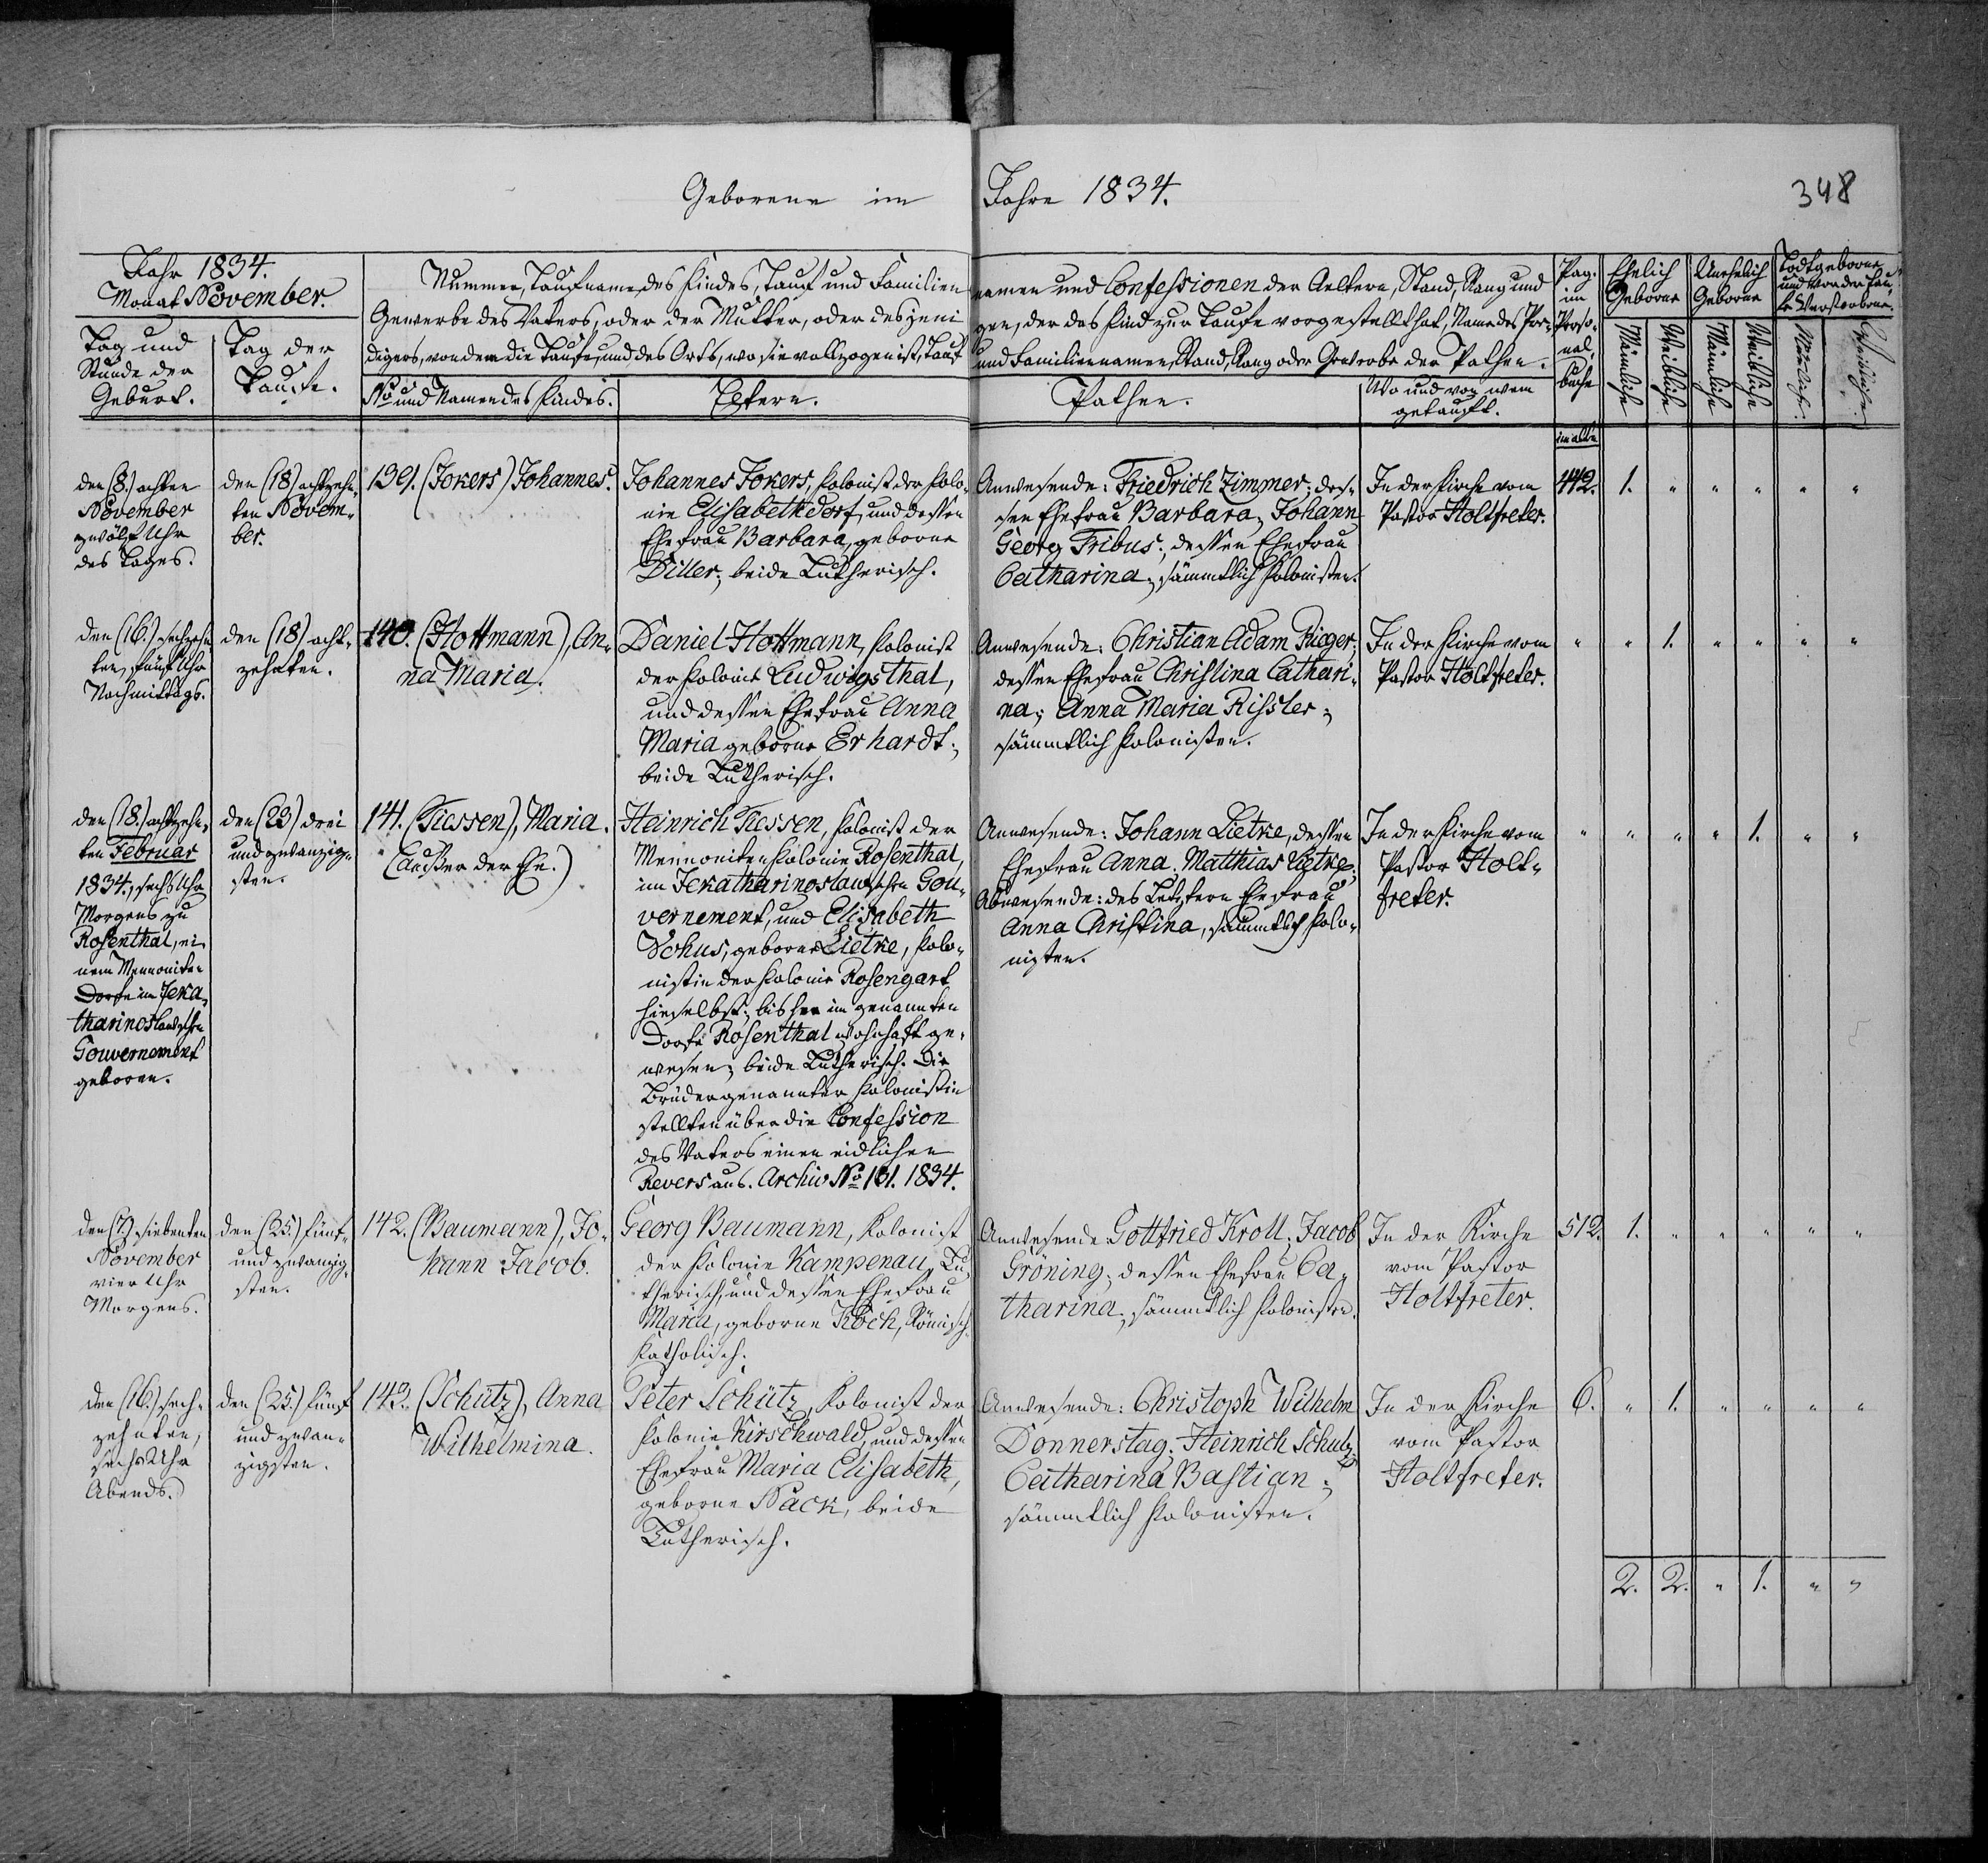 Geborene im Jahre 1834.
348
Jahr 1834.
Monat November.
Tag und
Stunde der
Geburt.
Tag der
Taufe.
Nummer, Taufname des Kindes, Tauf und Familien
namen und Confessionen der Aeltern, Stand, Rang und
Gewerbe des Vaters, oder der Mutter, oder desjeni
gen, der das Kind zur Taufe vorgestellt hat, Name des Pre-
digers, von dem die Taufe, und des Orts, wo sie vollzogen ist, Tauf
und Familiennamen, Stand, Rang oder Gewerbe der Pathen.
No und Namen des Kindes.
Eltern.
Pathen.
Wo und von wem
getauft.
Pag.
im
Perso-
nal-
buche
Ehelich
Geborne
Unehelich
Geborne
Todtgeborne
und vor der Tau-
fe Verstorbene.
Männliche
Weibliche
Männliche
Weibliche
Männliche
Weibliche
im alten
den (8.) achten
November
zwölf Uhr
des Tages.
den (18) achtzehn-
ten Novem-
ber.
139. (Jokers) Johannes.
Johannes Jokers, Kolonist der Kolo-
nie Elisabethdorf, und dessen
Ehefrau Barbara, geborne
Diller; beide Lutherisch.
Anwesende: Friedrich Zimmer; des-
sen Ehefrau Barbara; Johann
Georg Tribus; dessen Ehefrau
Catharina; sämmtlich Kolonisten.
In der Kirche vom
Pastor Holtfreter.
442. 1. " " " " "
den (16.) sechzehn-
ten, fünf Uhr
Nachmittags.
den (18) acht-
zehnten.
140. (Hottmann), An-
na Maria.
Daniel Hottmann, Kolonist
der Kolonie Ludwigsthal,
und dessen Ehefrau Anna
Maria geborne Erhardt;
beide Lutherisch.
Anwesende: Christian Adam Rieger;
dessen Ehefrau Christina Cathari-
na; Anna Maria Rissler;
sämmtlich Kolonisten.
In der Kirche vom
Pastor Holtfreter.
" " 1. " " " "
den (18.) achtzehn-
ten Februar
1834., sechs Uhr
Morgens zu
Rosenthal, ei-
nem Mennoniten
Dorfe im Jeka-
tharinoslawschen
Gouvernement
geboren.
den (23) drei
und zwanzig-
sten.
141. (Tiessen), Maria.
(Außer der Ehe.)
Heinrich Tiessen, Kolonist der
Mennoniten Kolonie Rosenthal,
im Jekatharinoslawschen Gou-
vernement, und Elisabeth
Schus, geborne Lietke, Kolo-
nistin der Kolonie Rosengart
hieselbst; bisher im genannten
Dorfe Rosenthal wohnhaft ge-
wesen; beide Lutherisch. Die
Brüder genannter Kolonistin
stellten über die Confession
des Vaters einen eidlichen
Revers aus. Archiv No 161. 1834.
Anwesende: Johann Lietke, dessen
Ehefrau Anna; Matthias Lietke;
Abwesende: des Letztern Ehefrau
Anna Christina, sämmtlich Kolo-
nisten.
In der Kirche vom
Pastor Holt-
freter.
" " " " 1. " "
den (7.) siebenten
November
vier Uhr
Morgens.
den (25.) fünf-
und zwanzig-
sten.
142. (Baumann), Jo-
hann Jacob.
Georg Baumann, Kolonist
der Kolonie Kampenau, Lu
therisch, und dessen Ehefrau
Maria, geborne Koch, Römisch-
Katholisch.
Anwesende Gottfried Kroll. Jacob
Gröning; dessen Ehefrau Ca-
tharina; sämmtlich Kolonisten.
In der Kirche
vom Pastor
Holtfreter.
512. 1. " " " " "
den (16.) sech-
zehnten,
sechs Uhr
Abends.
den (25.) fünf
und zwan-
zigsten.
143. (Schütz), Anna
Wilhelmina.
Peter Schütz, Kolonist der
Kolonie Kirschwald, und dessen
Ehefrau Maria Elisabeth,
geborne Nack, beide
Lutherisch.
Anwesende: Christoph Wilhelm
Donnerstag. Heinrich Schulz;
Catharina Bastian;
sämmtlich Kolonisten.
In der Kirche
vom Pastor
Holtfreter.
6. " 1. " " " "
2. 2. " 1. " "